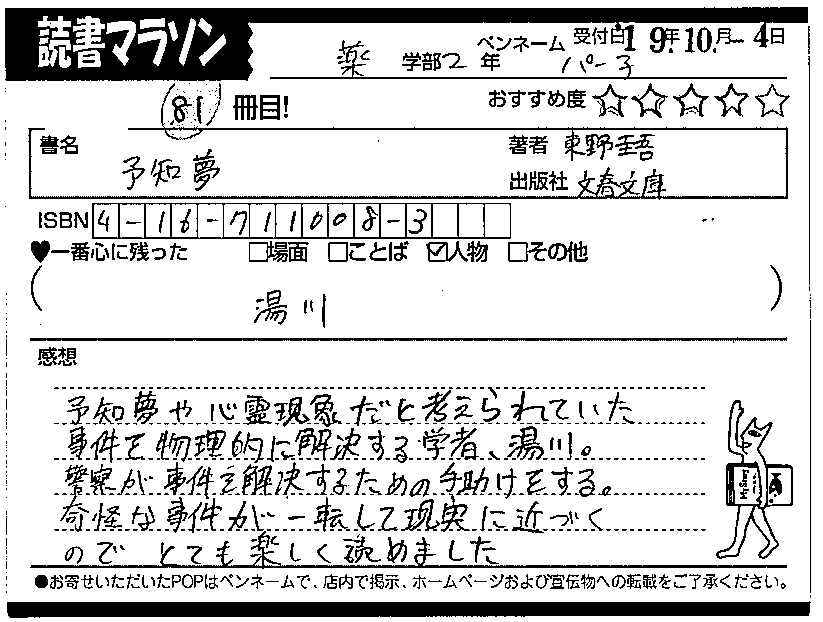 読書マラソン
薬 学部2年 ペンネーム パー子 受付日'19年10月-4日
81 冊目! おすすめ度 ☆☆☆☆☆
書名 予知夢 著者 東野圭吾
出版社 文春文庫
ISBN 4-16-711008-3
♥一番心に残った □場面 □ことば ☑人物 □その他
( 湯川 )
感想
予知夢や心霊現象だと考えられていた
事件を物理的に解決する学者、湯川。
警察が事件を解決するための手助けをする。
奇怪な事件が一転して現実に近づく
のでとても楽しく読めました
●お寄せいただいたPOPはペンネームで、店内で掲示、ホームページおよび宣伝物への転載をご了承ください。